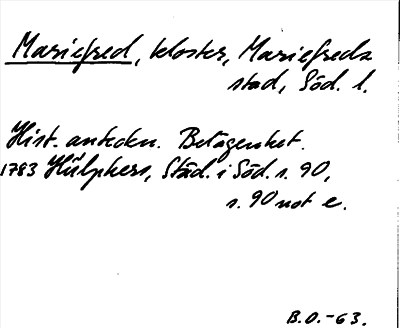 Mariefred, kloster, Mariefreds
stad, Söd. l.
Hist. anteckn. Belägenhet.
1783 Hülphers, Städ. i Söd. s. 90,
s. 90 not e.
B.O.-63.